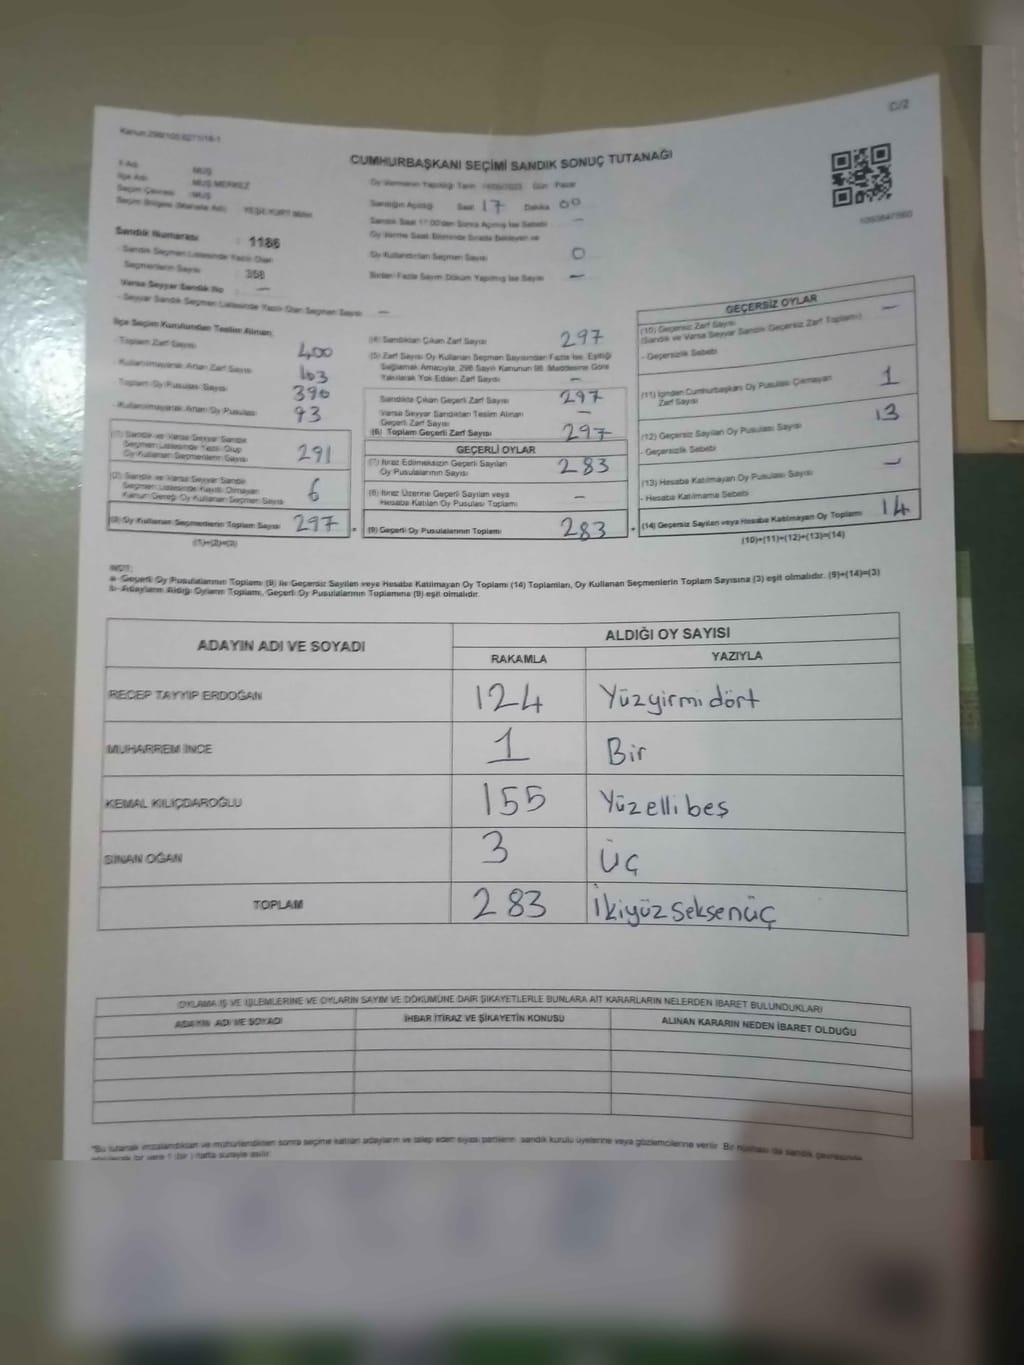 C/2
CUMHURBAŞKANI SEÇİMİ SANDIK SONUÇ TUTANAĞI
İl Adı : MUŞ
İlçe Adı : MUŞ MERKEZ
Seçim Çevresi : MUŞ
Seçim Bölgesi (Mahalle Adı) : YEŞİLYURT MAH.
Oy Vermenin Yapıldığı Tarih 14/05/2023 Gün Pazar
Sandığın Açıldığı Saat 17 Dakika 00
Sandık Saat 17:00'den Sonra Açılmış İse Sebebi —
Oy Verme Saati Bitiminde Sırada Bekleyen ve
Oy Kullandırılan Seçmen Sayısı 0
Birden Fazla Sayım Döküm Yapılmış İse Sayısı —
Sandık Numarası : 1186
- Sandık Seçmen Listesinde Yazılı Olan
Seçmenlerin Sayısı : 358
Varsa Seyyar Sandık No : —
- Seyyar Sandık Seçmen Listesinde Yazılı Olan Seçmen Sayısı —
İlçe Seçim Kurulundan Teslim Alınan;
- Toplam Zarf Sayısı 400
- Kullanılmayarak Artan Zarf Sayısı 103
- Toplam Oy Pusulası Sayısı 390
- Kullanılmayarak Artan Oy Pusulası 93
(1) Sandık ve Varsa Seyyar Sandık
Seçmen Listesinde Yazılı Olup
Oy Kullanan Seçmenlerin Sayısı 291
(2) Sandık ve Varsa Seyyar Sandık
Seçmen Listesinde Kayıtlı Olmayan
Kanun Gereği Oy Kullanan Seçmen Sayısı 6
(3) Oy Kullanan Seçmenlerin Toplam Sayısı 297
(1)+(2)=(3)
(4) Sandıktan Çıkan Zarf Sayısı 297
(5) Zarf Sayısı Oy Kullanan Seçmen Sayısından Fazla İse, Eşitliği
Sağlamak Amacıyla, 298 Sayılı Kanunun 98. Maddesine Göre
Yakılarak Yok Edilen Zarf Sayısı —
Sandıkta Çıkan Geçerli Zarf Sayısı 297
Varsa Seyyar Sandıktan Teslim Alınan
Geçerli Zarf Sayısı —
(6) Toplam Geçerli Zarf Sayısı 297
GEÇERLİ OYLAR
(7) İtiraz Edilmeksizin Geçerli Sayılan
Oy Pusulalarının Sayısı 283
(8) İtiraz Üzerine Geçerli Sayılan veya
Hesaba Katılan Oy Pusulası Toplamı —
(9) Geçerli Oy Pusulalarının Toplamı 283
GEÇERSİZ OYLAR
(10) Geçersiz Zarf Sayısı —
(Sandık ve Varsa Seyyar Sandık Geçersiz Zarf Toplamı)
- Geçersizlik Sebebi
(11) İçinden Cumhurbaşkanı Oy Pusulası Çıkmayan
Zarf Sayısı 1
(12) Geçersiz Sayılan Oy Pusulası Sayısı 13
- Geçersizlik Sebebi
(13) Hesaba Katılmayan Oy Pusulası Sayısı —
- Hesaba Katılmama Sebebi
(14) Geçersiz Sayılan veya Hesaba Katılmayan Oy Toplamı 14
(10)+(11)+(12)+(13)=(14)
NOT:
a- Geçerli Oy Pusulalarının Toplamı (9) ile Geçersiz Sayılan veya Hesaba Katılmayan Oy Toplamı (14) Toplamları, Oy Kullanan Seçmenlerin Toplam Sayısına (3) eşit olmalıdır. (9)+(14)=(3)
b- Adayların Aldığı Oyların Toplamı, Geçerli Oy Pusulalarının Toplamına (9) eşit olmalıdır.
ADAYIN ADI VE SOYADI ALDIĞI OY SAYISI
RAKAMLA YAZIYLA
RECEP TAYYİP ERDOĞAN 124 Yüzyirmidört
MUHARREM İNCE 1 Bir
KEMAL KILIÇDAROĞLU 155 Yüzellibeş
SİNAN OĞAN 3 Üç
TOPLAM 283 İkiyüzseksenüç
OYLAMA İŞ VE İŞLEMLERİNE VE OYLARIN SAYIM VE DÖKÜMÜNE DAİR ŞİKAYETLERLE BUNLARA AİT KARARLARIN NELERDEN İBARET BULUNDUKLARI
ADAYIN ADI VE SOYADI İHBAR İTİRAZ VE ŞİKAYETİN KONUSU ALINAN KARARIN NEDEN İBARET OLDUĞU
"Bu tutanak imzalandıktan ve mühürlendikten sonra seçime katılan adayların ve talep eden siyasi partilerin sandık kurulu üyelerine veya gözlemcilerine verilir. Bir nüshası da sandık çevresinde